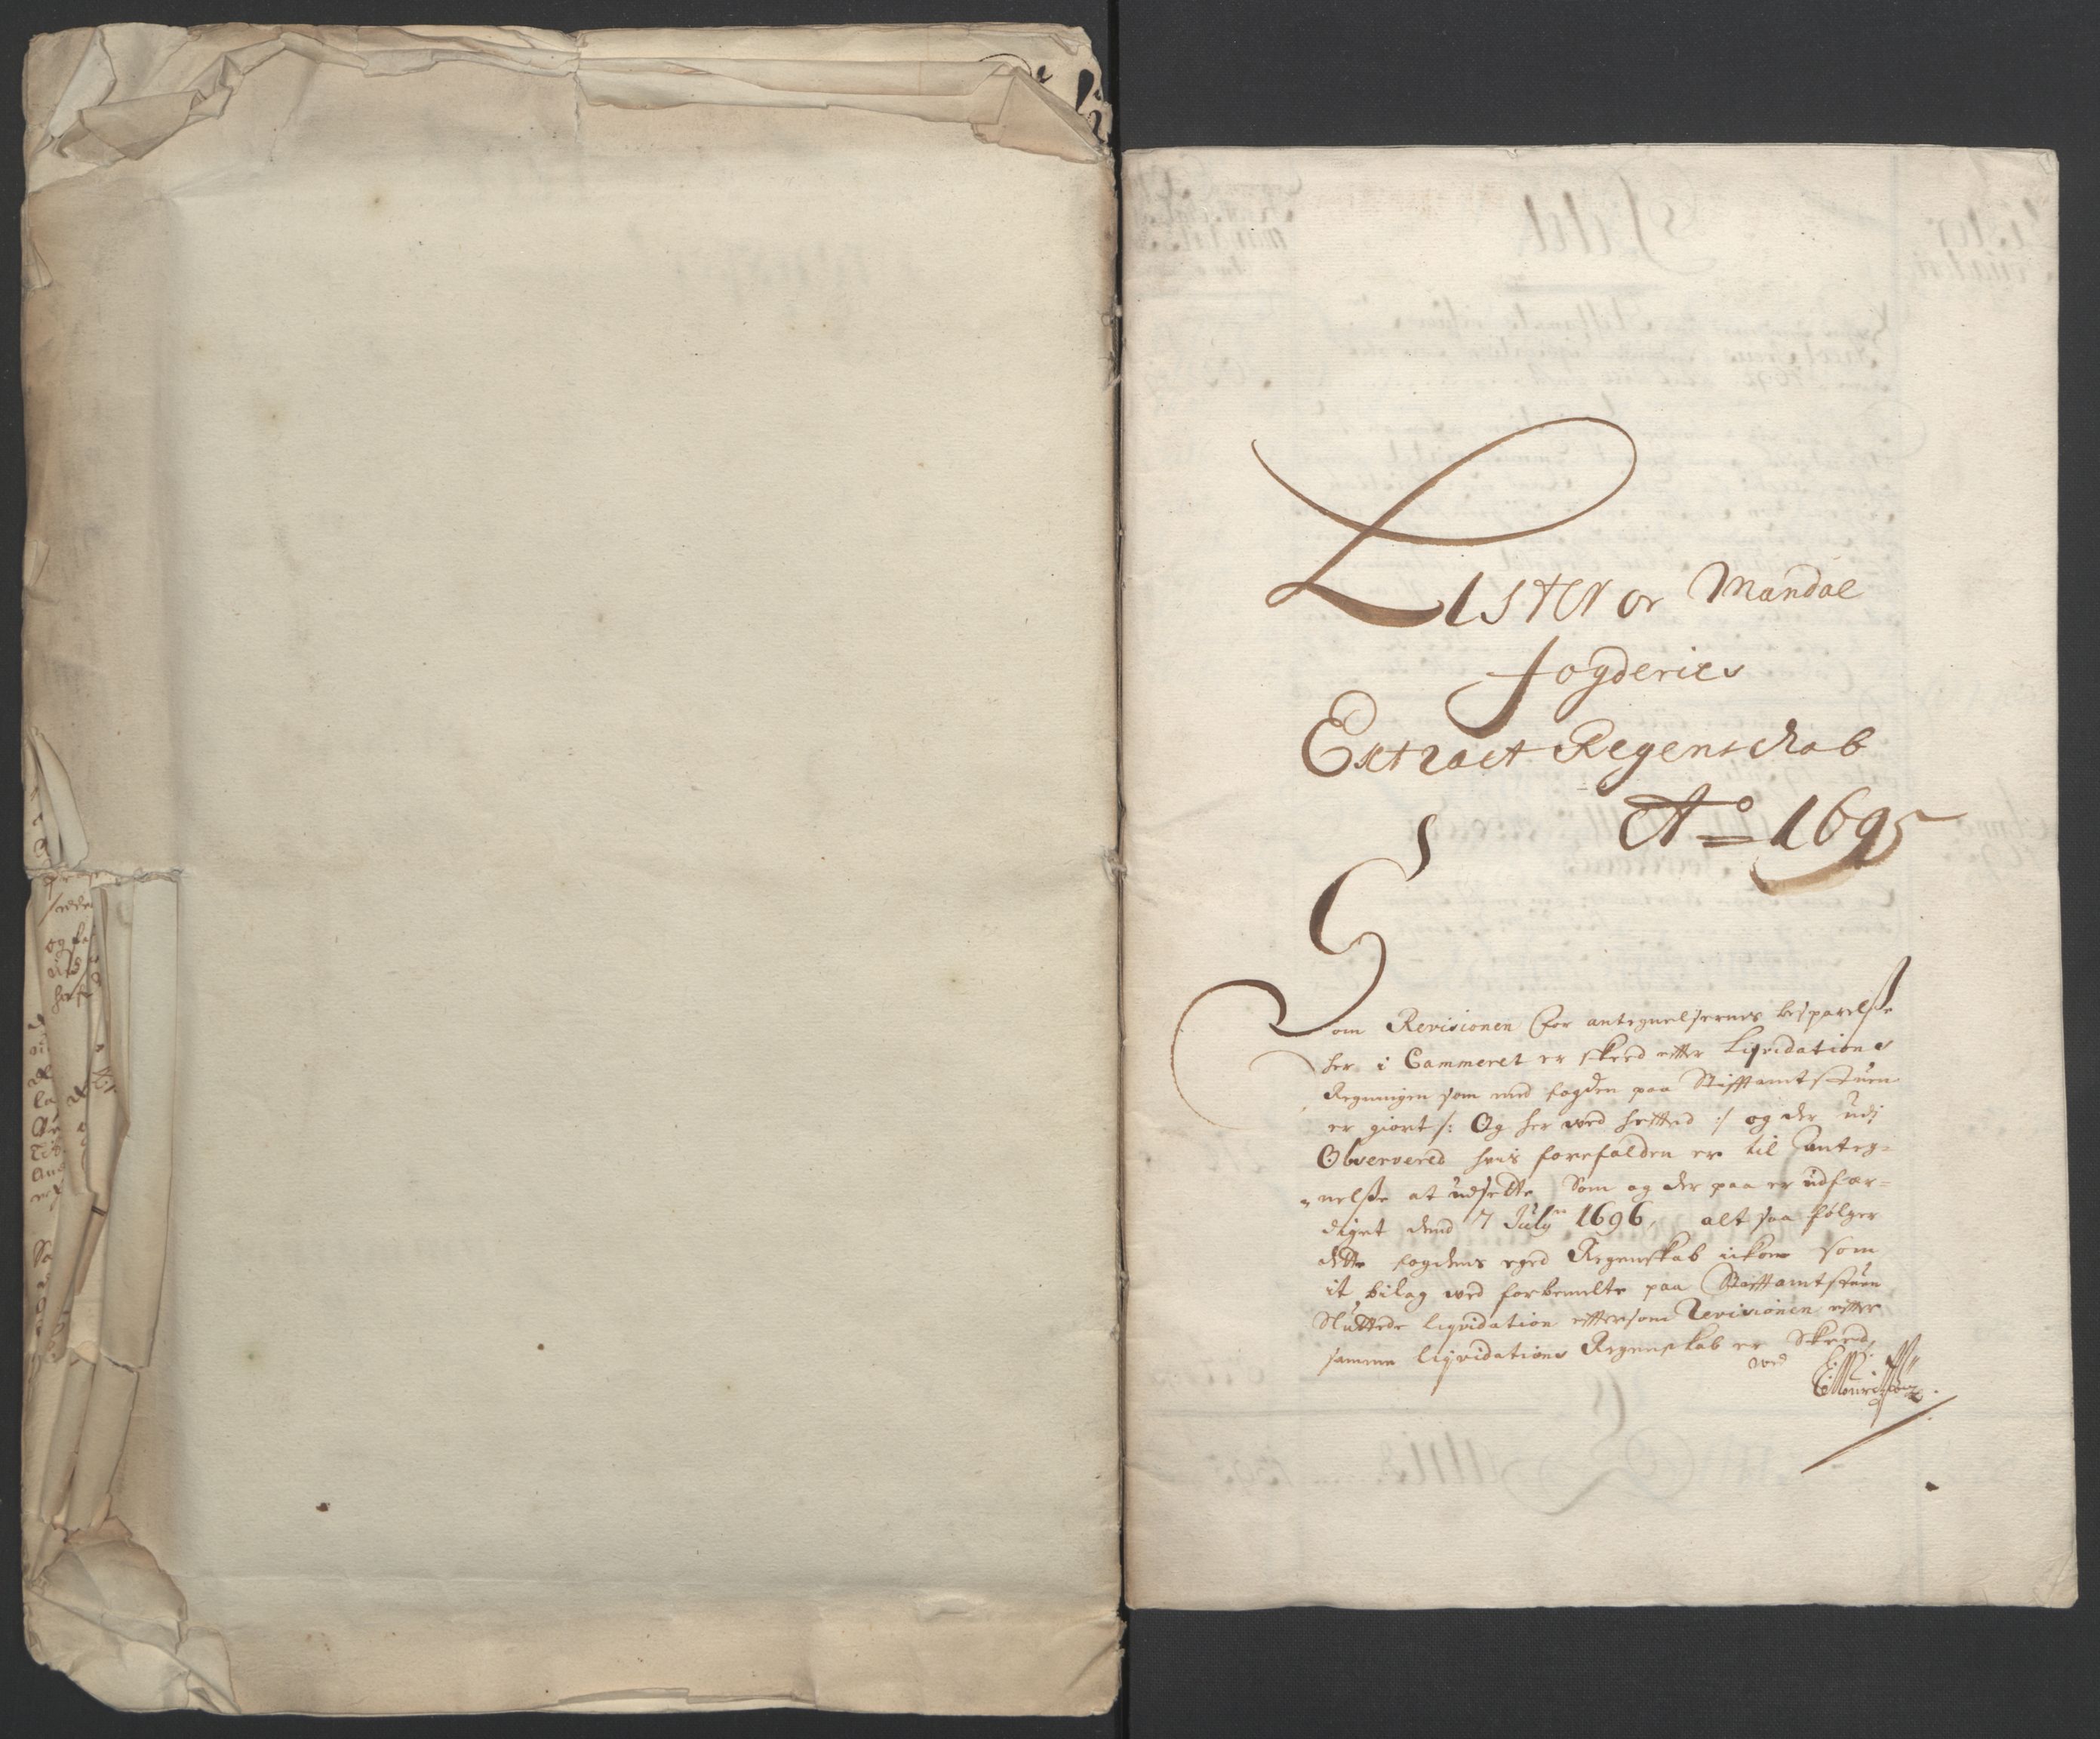 Lister oc Mandal
fogderies
Extract Regenschab
Ao 1695
Som Revisionen for antegnelsernes besparelsse
her i Cammeret er skeed effter Liqvidations
Regningen som med fogden paa Stifftamtstuen
er giort /: Og her ved heffted :/ og der udj
Observered hvis forefalden er til anteg=
nelsse at udsette, Som og der paa er udfær=
diget dend 7 July 1696, alt saa følger
dette fogdens eged Regenskab ickon som
it bilag ved forbemelte paa Stifftamtstuen
Sluttede liqvidation efftersom Revisionen effter
samme liqvidations Regenskab er Skeed,
ved